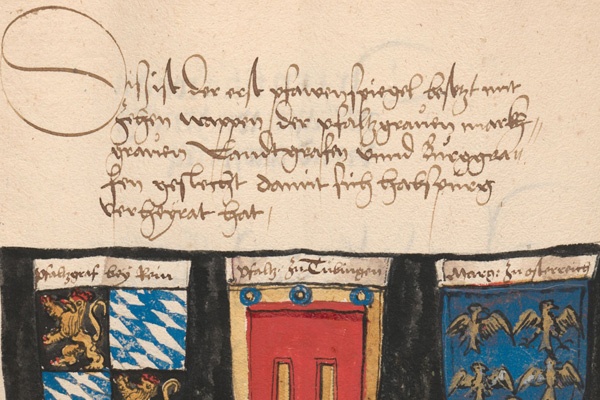 Dis ist der erst pfawenspiegel besetzt mit
zehen wappen der pfaltzgrauen mark„
grauen Landtgrafen vnnd Burggra„
fen geslecht damit sich habspurg
verheyrat hat
Pfaltzgraf bey Rein
Pfaltz: zu Tübingen
Marg: zu osterreich